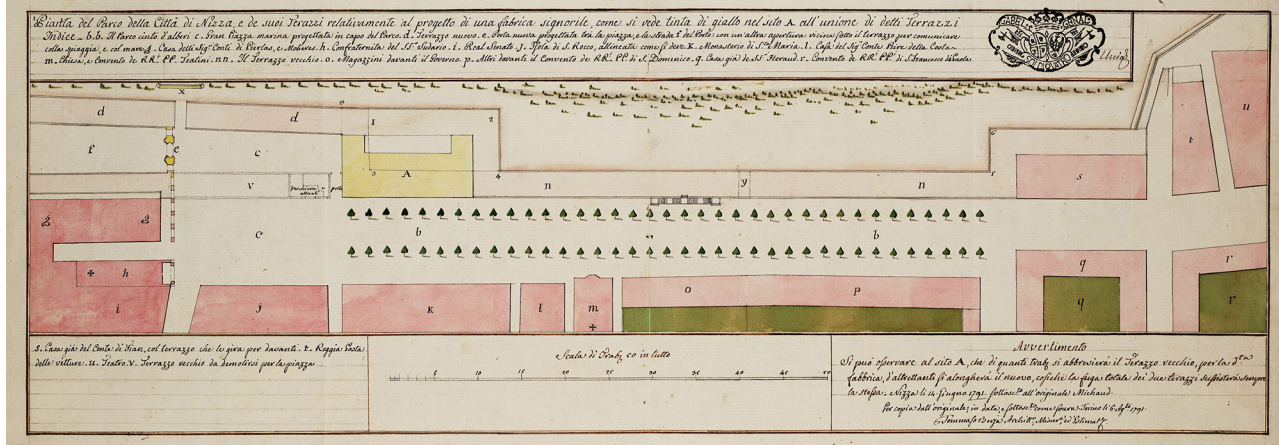 Pianta del Parco della Città di Nizza, e de suoi Terazzi relativamente al progetto di una fabrica signorile, come si vede tinta di giallo nel sito A all'unione di detti Terrazzi
Indice _ b.b. Il Parco cinto d'alberi c. Gran Piazza marina progettata in capo del Parco. d. Terrazzo nuovo. e. Porta nuova progettata tra la piazza, e la strada f. del Porto con un'altra apertura vicina sotto il terrazzo per comunicare
colla spiaggia, e col mare. g. Casa delli Sig.ri Conti di Pierlas, e Moliures. h. Confraternita del SS.mo Sudario. i. Real Senato. j. Isola di S. Rocco, allineata come si deve. k. Monasterio di S.ta Maria. l. Casa del Sig.r Conte
m. Chiesa, e Convento de RR. PP. Teatini. n n. Il Terrazzo vecchio. o. Magazzini davanti il Governo. p. Altri davanti il Convento de RR. PP. di S. Domenico. q. Casa già de Heraud. r. Convento de RR. PP. di S. Francesco di Paola
x
d
d
1
2
f
e
c
A
3
4
6
t
u
s
v
porto
n
y
n
g
g
e
b
b
h
i
j
k
l
m
o
p
q
q
r
r
s. Casa già del Conte di col terrazzo che le gira per davanti. t. Reggia Posta
delle vetture. u. Teatro. v. Terrazzo vecchio da demolirsi per la piazza
Scala di Trab. 50 in tutto
5 10 15 20 25 30 35 40 45 50
Avvertimento
Si può osservare al sito A, che di quanti trab. si abbrevierà il Terazzo vecchio, per la d.ta
fabbrica, d'altrettanti si alongherà il nuovo, cosiche la fuga totale dei due terazzi sussisterà sempre
la stessa. Nizza li 14 Giugno 1791. sottosc.to all'originale Michaud.
Per copia dall'originale, in data, e sottosc.to come sovra. Torino li 6 Ag.to 1791.
Tommaso Architt.o, Misur.e, ed Estimat.e